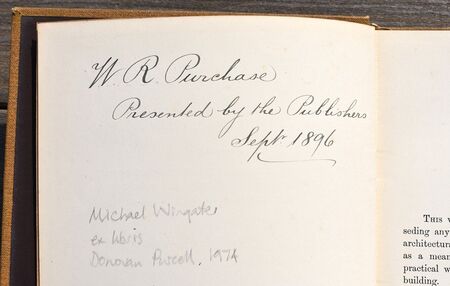 W. R. Purchase
Presented by the Publishers
Septr 1896
Michael Wingate
ex libris
Donovan Purcell, 1974
THIS
seding any
architectur
as a mean
practical w
building.